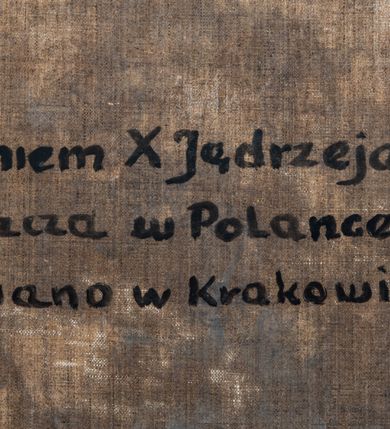 niem X Jądrzeja
szcza w Polance
wano w Krakowi